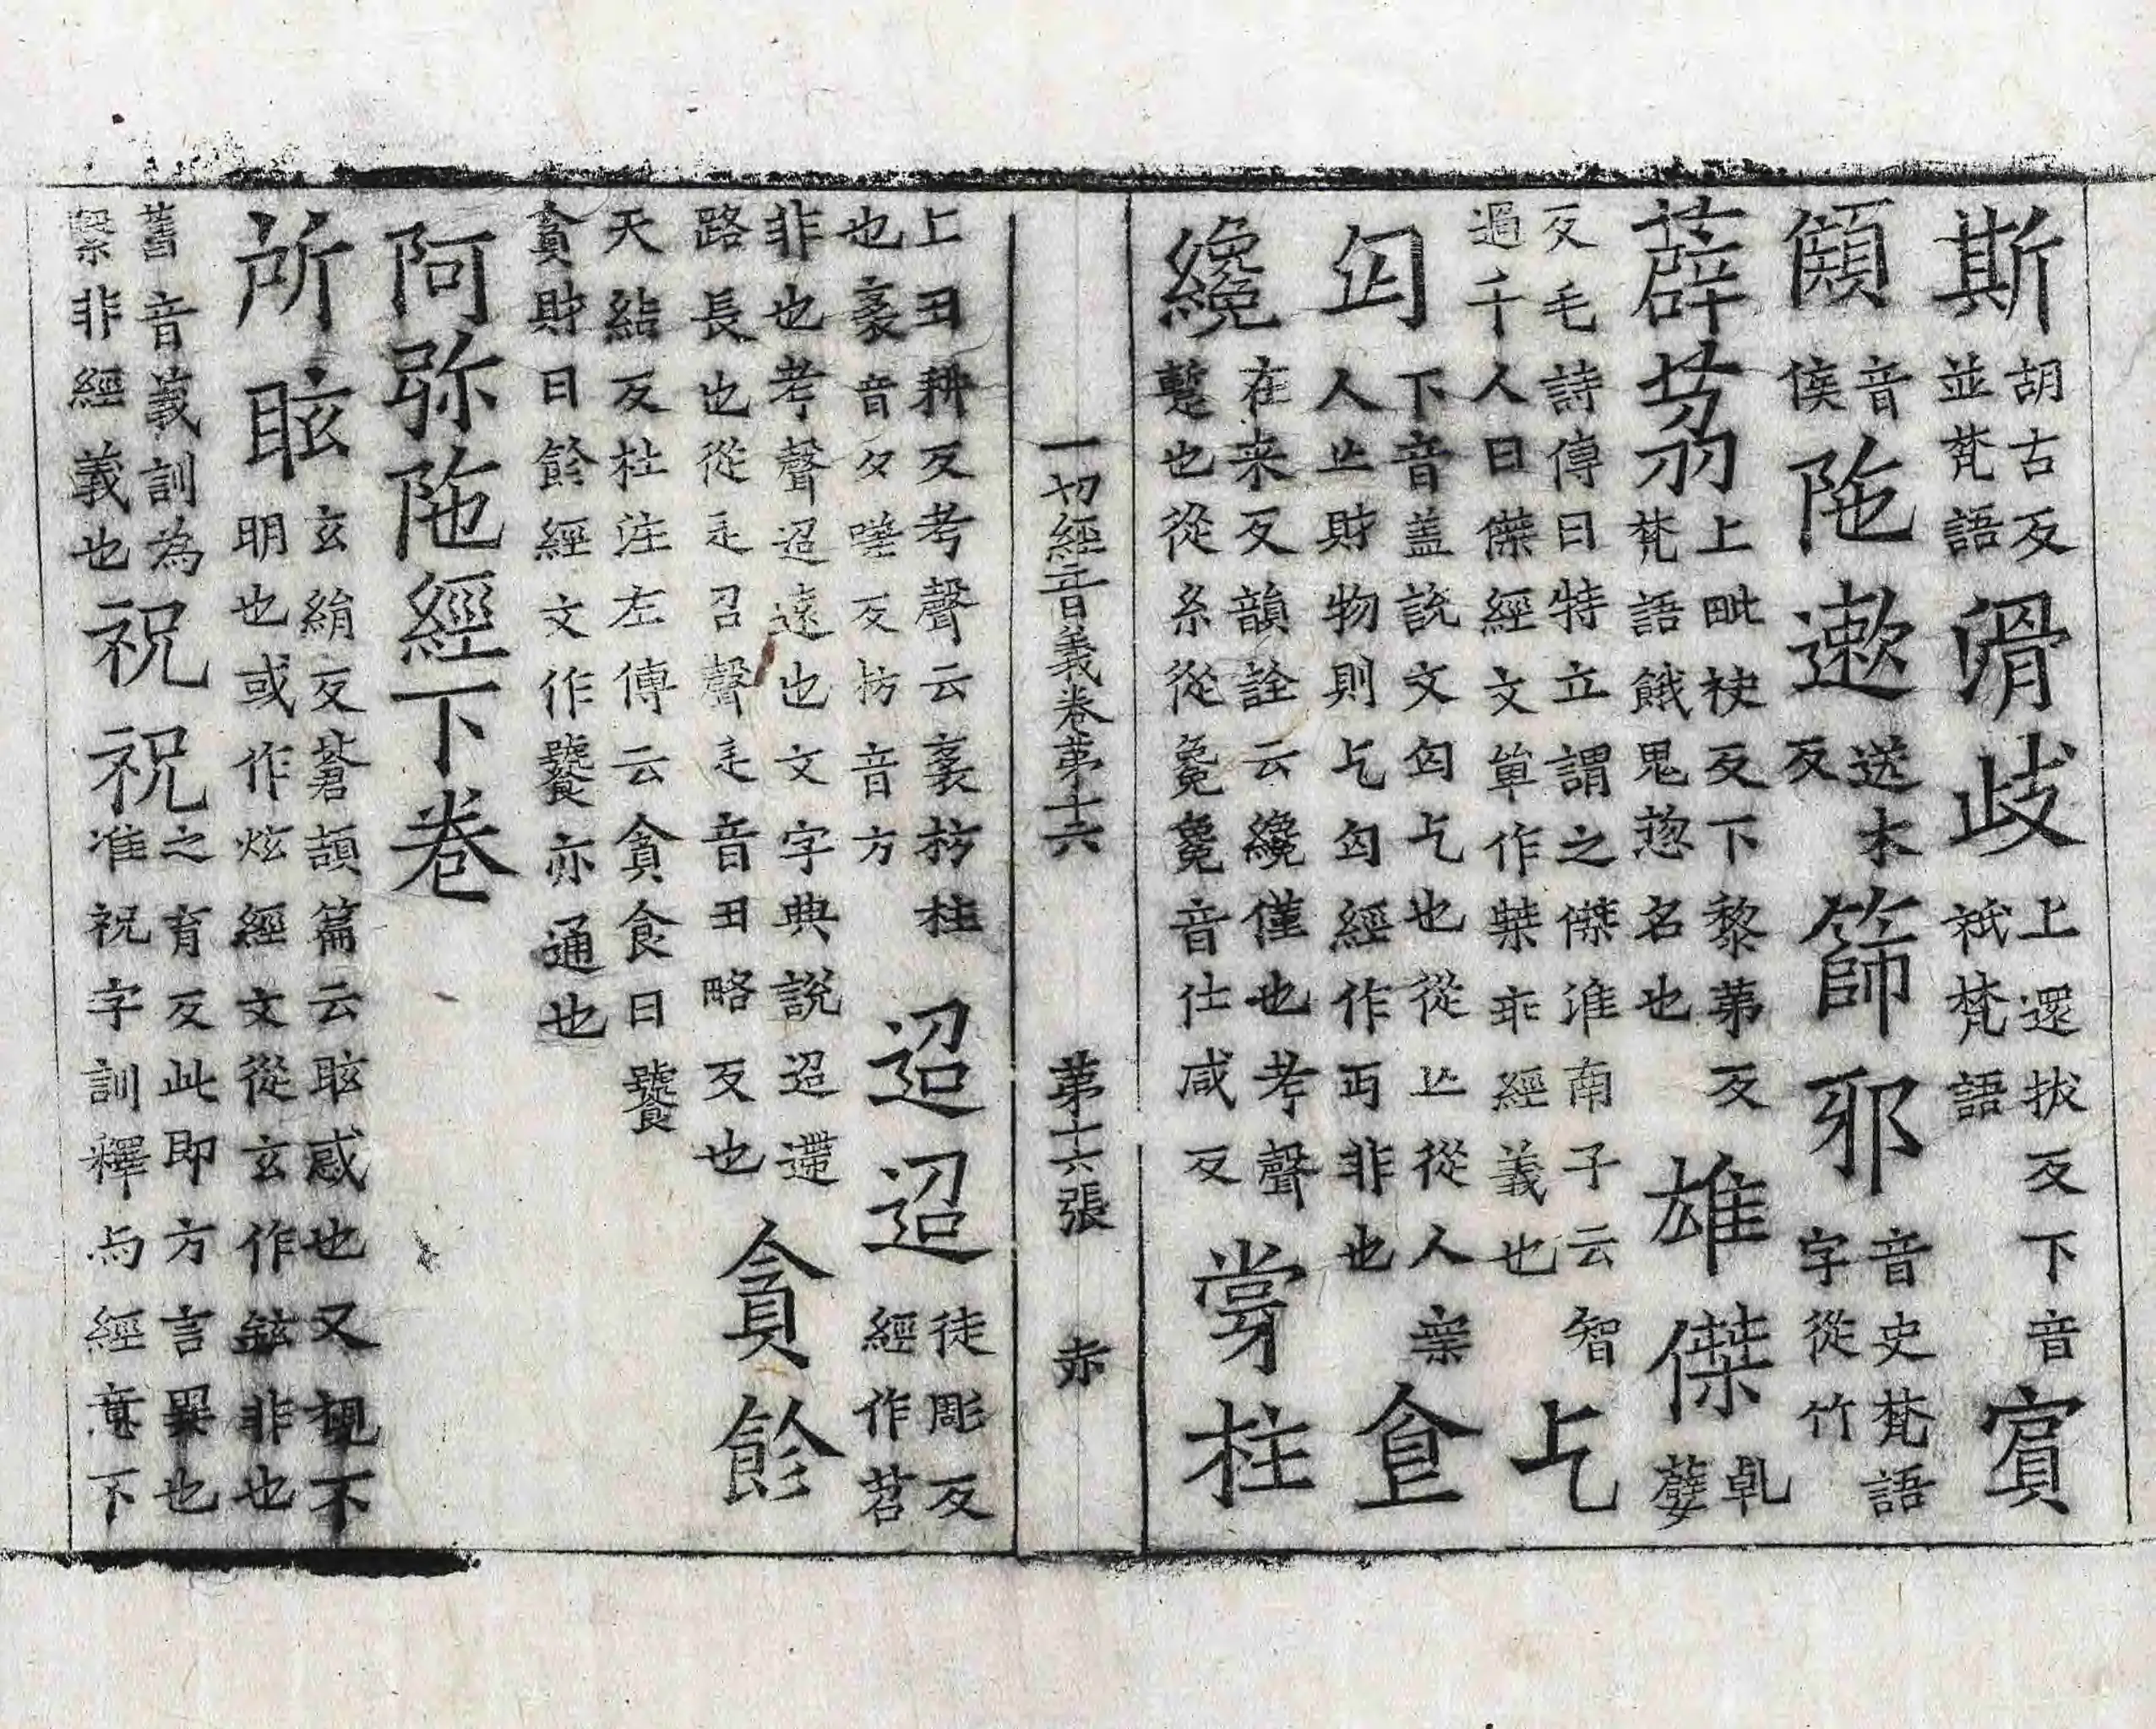 斯胡古反並梵語滑歧上還拔反下音祇梵語賔
𩓥音侯陁遬送木反篩邪音史梵語字從竹
薜茘上毗袂反下黎苐反梵語餓鬼惣名也雄傑乹蘖
反毛詩傳曰特立謂之傑淮南子云智過千人曰傑經文單作桀乖經義也乞
匃下音盖說文匃乞也從亾從人亾人亾財物則乞匃經作丐非也𥁕
纔在来反韻詮云纔僅也考聲暫也從糸從毚毚音仕咸反甞柱
一切經音義卷第十六　第十六張　赤
上丑耕反考聲云衺柱也衺音夕嗟反迢迢徒彫反經作苕
非也考聲迢遠也文字典說迢遰路長也從辵召聲辵音丑略反也貪飻
天結反杜注左傳云貪食曰饕貪財曰飻經文作饕亦通也
阿弥陁經下卷
所眩玄絹反蒼頡篇云眩惑也又視不明也或作炫經文從玄作鉉非也
舊音義訓為縏非經義也祝祝之育反此即方言異也准祝字訓釋与經意下